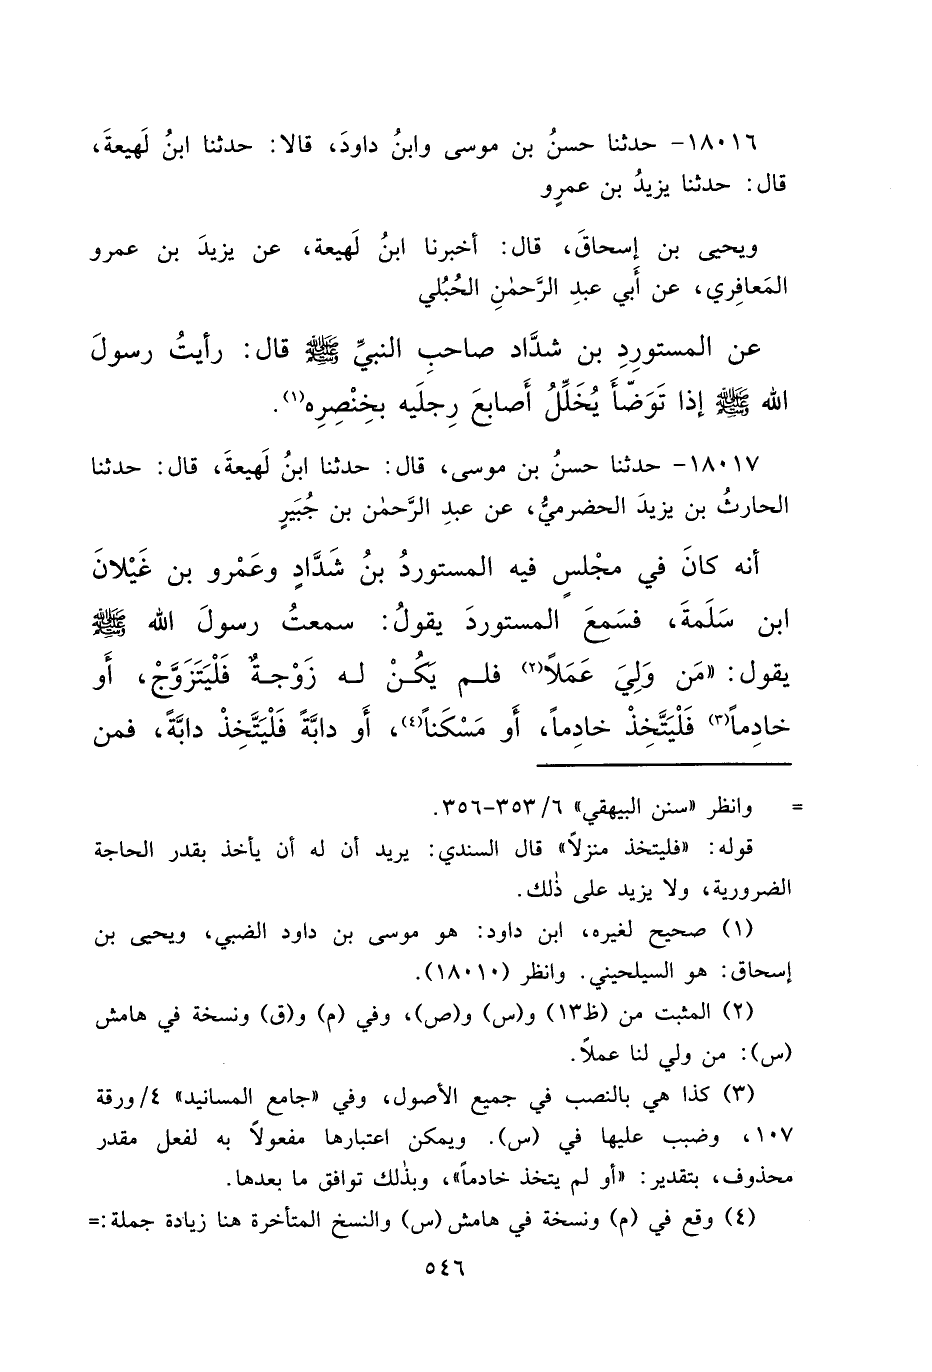 ١٨٠١٦- حدثنا حسنُ بن موسى وابنُ داودَ، قالا: حدثنا ابنُ لَهيعةَ،
قال: حدثنا يزيدُ بن عمرٍو
ويحيى بن إسحاقَ، قال: أخبرنا ابنُ لَهيعة، عن يزيدَ بن عمرو
المَعافِري، عن أَبي عبدِ الرَّحمٰنِ الحُبُلي
عن المستورِدِ بن شدَّاد صاحبِ النبيِّ ﷺ قال: رأيتُ رسولَ
الله ﷺ إذا تَوَضّأَ يُخَلِّلُ أَصابعَ رِجلَيه بخِنْصِرِه(١).
١٨٠١٧- حدثنا حسنُ بن موسى، قال: حدثنا ابنُ لَهيعةَ، قال: حدثنا
الحارثُ بن يزيدَ الحضرميُّ، عن عبدِ الرَّحمٰن بن جُبَيرٍ
أنه كانَ في مجْلسٍ فيه المستوردُ بنُ شَدَّادٍ وعَمْرو بن غَيْلانَ
ابن سَلَمةَ، فسَمِعَ المستوردَ يقولُ: سمعتُ رسولَ الله ﷺ
يقول: «مَن وَلِيَ عَمَلاً(٢) فلـم يَكُـنْ لـه زَوْجـةٌ فَلْيَتَزَوَّجْ، أَو
خادِماً(٣) فَلْيَتَّخِذْ خادِماً، أَو مَسْكَناً(٤)، أَو دابَّةً فَلْيَتَّخِذْ دابَّةً، فمن
= وانظر «سنن البيهقي» ٦/ ٣٥٣-٣٥٦.
قوله: «فليتخذ منزلاً» قال السندي: يريد أن له أن يأخذ بقدر الحاجة
الضرورية، ولا يزيد على ذٰلك.
(١) صحيح لغيره، ابن داود: هو موسى بن داود الضبي، ويحيى بن
إسحاق: هو السيلحيني. وانظر (١٨٠١٠).
(٢) المثبت من (ظ١٣) و(س) و(ص)، وفي (م) و(ق) ونسخة في هامش
(س): من ولي لنا عملاً.
(٣) كذا هي بالنصب في جميع الأصول، وفي «جامع المسانيد» ٤/ورقة
١٠٧، وضبب عليها في (س). ويمكن اعتبارها مفعولاً به لفعل مقدر
محذوف، بتقدير: «أو لم يتخذ خادماً»، وبذٰلك توافق ما بعدها.
(٤) وقع في (م) ونسخة في هامش (س) والنسخ المتأخرة هنا زيادة جملة:=
٥٤٦